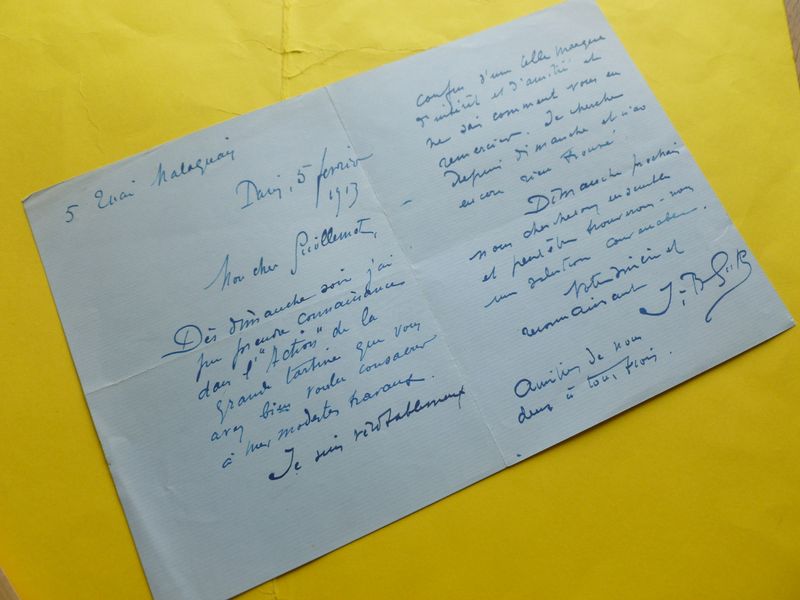 5 Quai Malaquais
Paris, 5 février
1913
Mon cher Guillemot,
Dès dimanche soir j'ai
pu prendre connaissance
dans l'"Action" de la
grande tartine que vous
avez bien voulu consacrer
à mes modestes travaux.
Je suis véritablement
confus d'une telle marque
d'intérêt et d'amitié et
ne sais comment vous en
remercier. Je cherche
depuis dimanche et n'ai
encore rien trouvé.
Dimanche prochain
nous chercherons ensemble
et peut-être trouverons-nous
une solution convenable.
Votre sincère et
reconnaissant
Amitiés de nous
deux à tous trois.